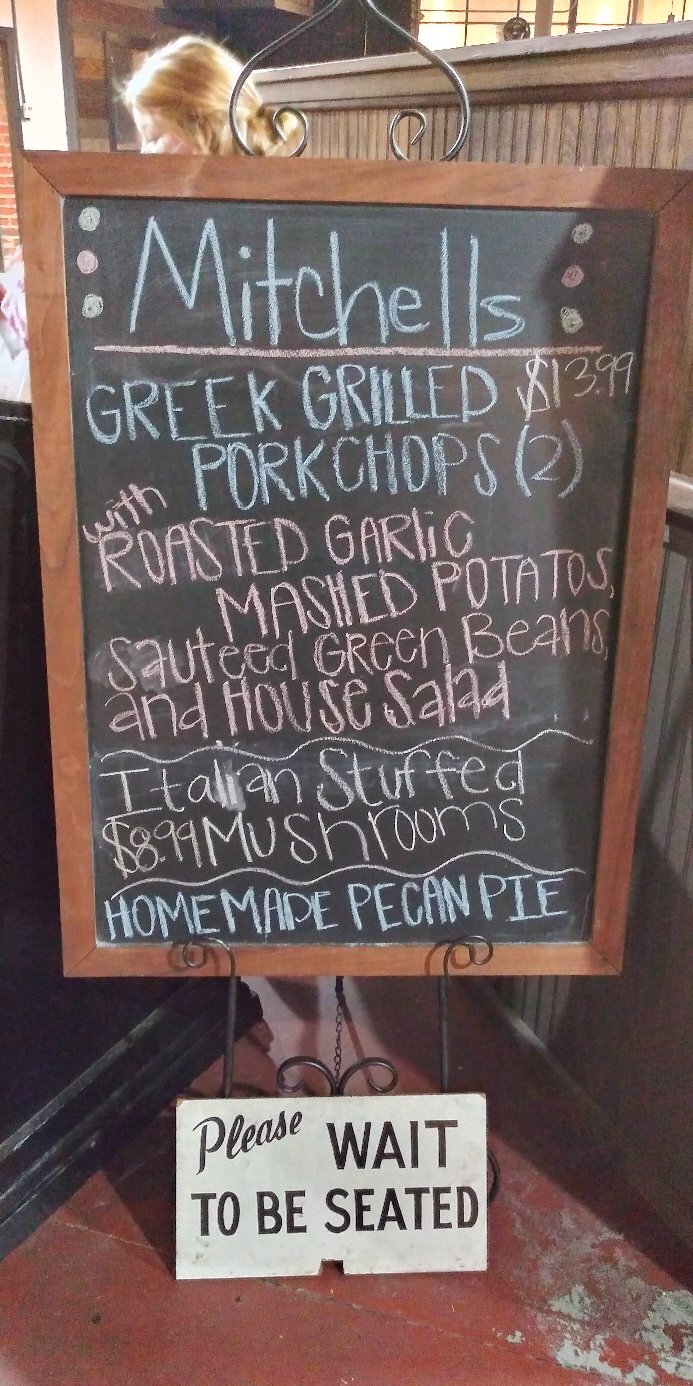 Mitchells
GREEK GRILLED $13.99
PORKCHOPS (2)
with
ROASTED GARLiC
MASHED POTATOS,
Sauteed GREEN Beans,
and HOUSE Salad
Italian Stuffed
$8.99 MUSHrooms
HOMEMADE PECAN PIE
Please WAIT
TO BE SEATED